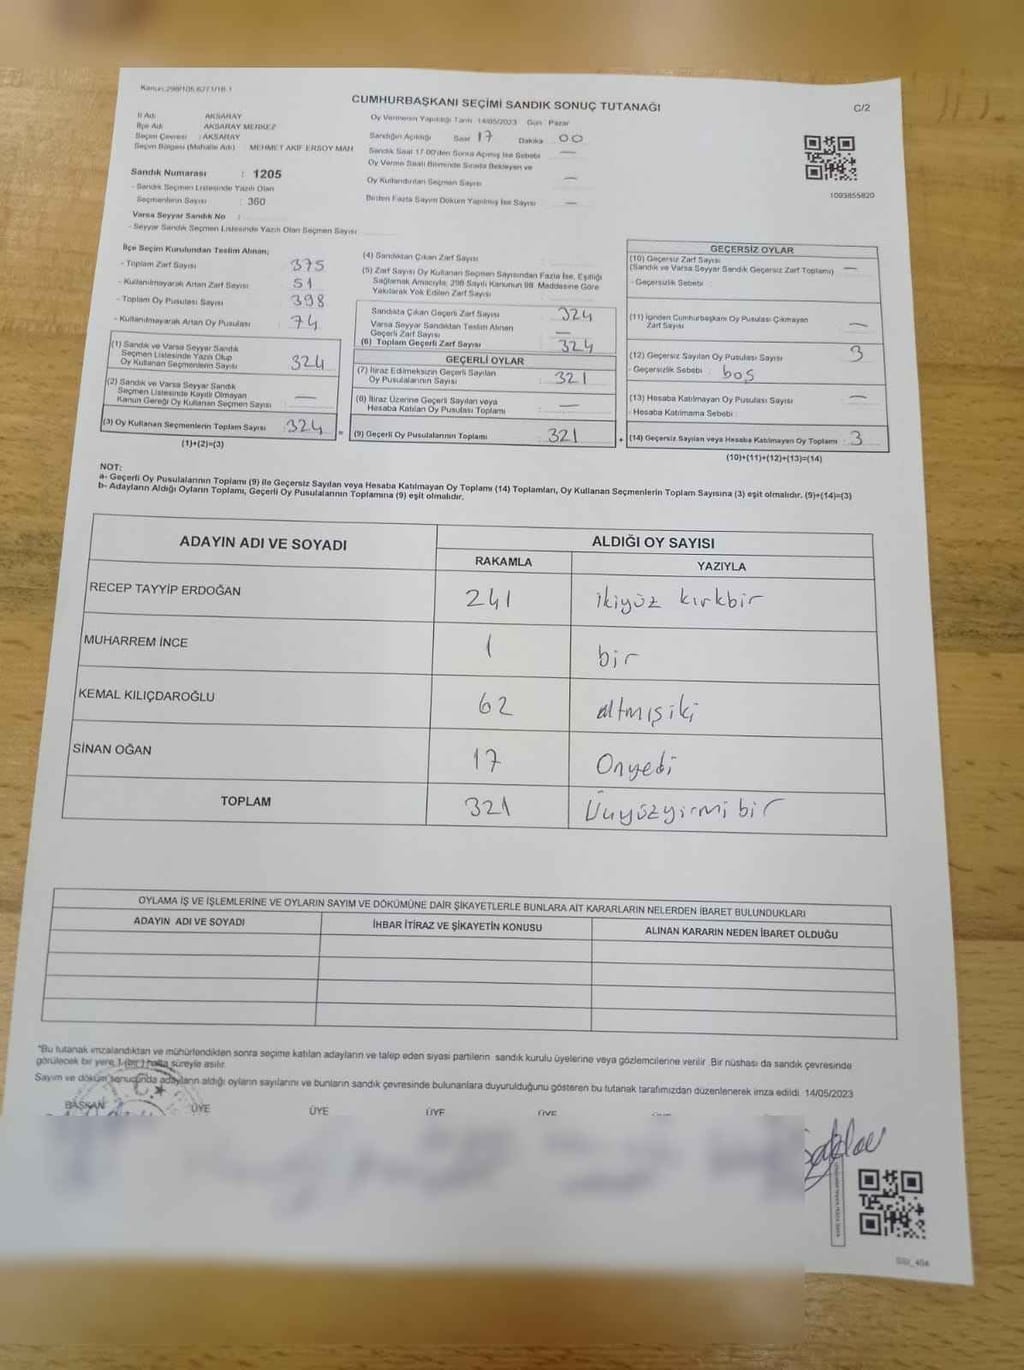 Kanun:298/105,6271/18-1
CUMHURBAŞKANI SEÇİMİ SANDIK SONUÇ TUTANAĞI
C/2
İl Adı : AKSARAY
İlçe Adı AKSARAY MERKEZ
Seçim Çevresi : AKSARAY
Seçim Bölgesi (Mahalle Adı) : MEHMET AKİF ERSOY MAH
Sandık Numarası : 1205
- Sandık Seçmen Listesinde Yazılı Olan
Seçmenlerin Sayısı : 360
Varsa Seyyar Sandık No :
- Seyyar Sandık Seçmen Listesinde Yazılı Olan Seçmen Sayısı
Oy Vermenin Yapıldığı Tarih 14/05/2023 Gün Pazar
Sandığın Açıldığı Saat 17 Dakika 00
Sandık Saat 17:00'den Sonra Açılmış İse Sebebi —
Oy Verme Saati Bitiminde Sırada Bekleyen ve
Oy Kullandırılan Seçmen Sayısı —
Birden Fazla Sayım Döküm Yapılmış İse Sayısı —
1093855820
İlçe Seçim Kurulundan Teslim Alınan;
- Toplam Zarf Sayısı 375
- Kullanılmayarak Artan Zarf Sayısı 51
- Toplam Oy Pusulası Sayısı 398
- Kullanılmayarak Artan Oy Pusulası 74
(1) Sandık ve Varsa Seyyar Sandık
Seçmen Listesinde Yazılı Olup
Oy Kullanan Seçmenlerin Sayısı 324
(2) Sandık ve Varsa Seyyar Sandık
Seçmen Listesinde Kayıtlı Olmayan
Kanun Gereği Oy Kullanan Seçmen Sayısı —
(3) Oy Kullanan Seçmenlerin Toplam Sayısı 324 =
(1)+(2)=(3)
(4) Sandıktan Çıkan Zarf Sayısı
(5) Zarf Sayısı Oy Kullanan Seçmen Sayısından Fazla İse, Eşitliği
Sağlamak Amacıyla, 298 Sayılı Kanunun 98. Maddesine Göre
Yakılarak Yok Edilen Zarf Sayısı
Sandıkta Çıkan Geçerli Zarf Sayısı 324
Varsa Seyyar Sandıktan Teslim Alınan
Geçerli Zarf Sayısı —
(6) Toplam Geçerli Zarf Sayısı 324
GEÇERLİ OYLAR
(7) İtiraz Edilmeksizin Geçerli Sayılan
Oy Pusulalarının Sayısı 321
(8) İtiraz Üzerine Geçerli Sayılan veya
Hesaba Katılan Oy Pusulası Toplamı —
(9) Geçerli Oy Pusulalarının Toplamı 321 +
GEÇERSİZ OYLAR
(10) Geçersiz Zarf Sayısı
(Sandık ve Varsa Seyyar Sandık Geçersiz Zarf Toplamı) —
- Geçersizlik Sebebi :
(11) İçinden Cumhurbaşkanı Oy Pusulası Çıkmayan
Zarf Sayısı —
(12) Geçersiz Sayılan Oy Pusulası Sayısı 3
- Geçersizlik Sebebi : boş
(13) Hesaba Katılmayan Oy Pusulası Sayısı —
- Hesaba Katılmama Sebebi :
(14) Geçersiz Sayılan veya Hesaba Katılmayan Oy Toplamı : 3
(10)+(11)+(12)+(13)=(14)
NOT:
a- Geçerli Oy Pusulalarının Toplamı (9) ile Geçersiz Sayılan veya Hesaba Katılmayan Oy Toplamı (14) Toplamları, Oy Kullanan Seçmenlerin Toplam Sayısına (3) eşit olmalıdır. (9)+(14)=(3)
b- Adayların Aldığı Oyların Toplamı, Geçerli Oy Pusulalarının Toplamına (9) eşit olmalıdır.
ADAYIN ADI VE SOYADI
ALDIĞI OY SAYISI
RAKAMLA YAZIYLA
RECEP TAYYİP ERDOĞAN 241 ikiyüz kırkbir
MUHARREM İNCE 1 bir
KEMAL KILIÇDAROĞLU 62 altmışiki
SİNAN OĞAN 17 Onyedi
TOPLAM 321 Üüyüzyirmi bir
OYLAMA İŞ VE İŞLEMLERİNE VE OYLARIN SAYIM VE DÖKÜMÜNE DAİR ŞİKAYETLERLE BUNLARA AİT KARARLARIN NELERDEN İBARET BULUNDUKLARI
ADAYIN ADI VE SOYADI İHBAR İTİRAZ VE ŞİKAYETİN KONUSU ALINAN KARARIN NEDEN İBARET OLDUĞU
*Bu tutanak imzalandıktan ve mühürlendikten sonra seçime katılan adayların ve talep eden siyasi partilerin sandık kurulu üyelerine veya gözlemcilerine verilir. Bir nüshası da sandık çevresinde
görülecek bir yere 1 (bir) hafta süreyle asılır.
Sayım ve döküm sonucunda adayların aldığı oyların sayılarını ve bunların sandık çevresinde bulunanlara duyurulduğunu gösteren bu tutanak tarafımızdan düzenlenerek imza edildi. 14/05/2023
BAŞKAN ÜYE ÜYE ÜYE ÜYE